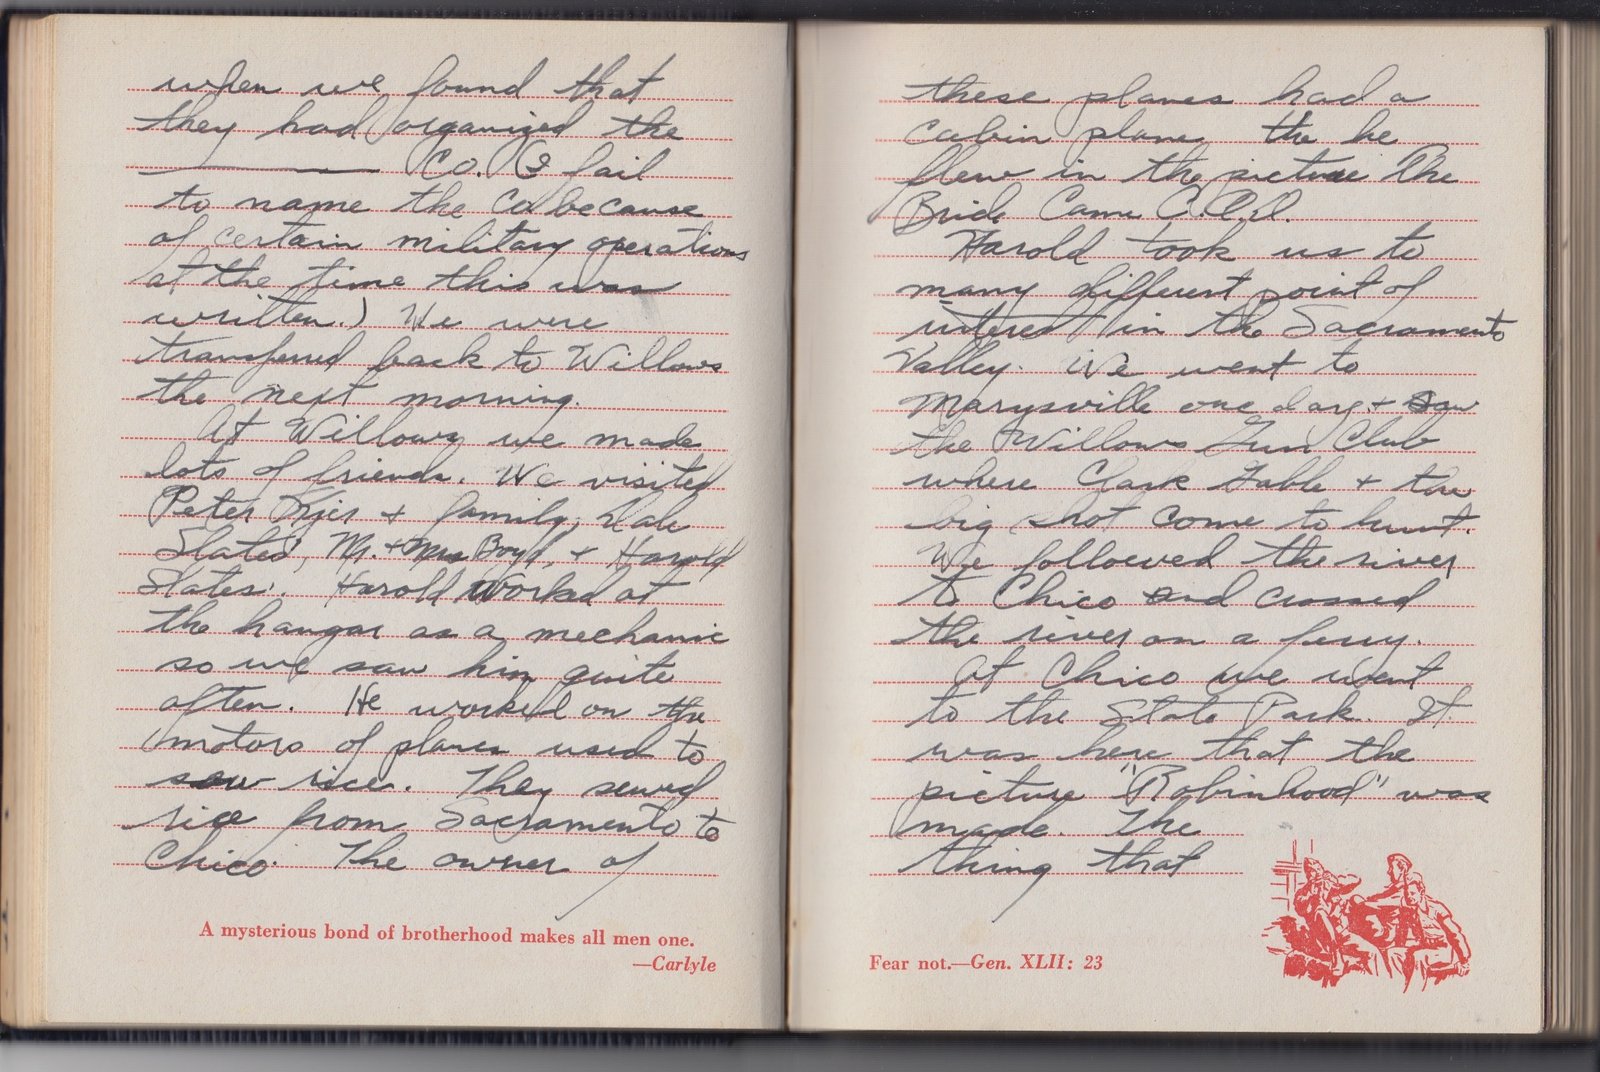 when we found that
they had organized the
——— Co. (I fail
to name the Co because
of certain military operations
at the time this was
written.) We were
transferred back to Willows
the next morning.
At Willows we made
lots of friends. We visited
Peter Kjer + family, Dale
Slates', Mr. + Mrs Boyd, + Harold
Slates'. Harold worked at
the hangar as a mechanic
so we saw him quite
often. He worked on the
motors of planes used to
sow rice. They sewed
rice from Sacramento to
Chico. The owner of
A mysterious bond of brotherhood makes all men one.
—Carlyle
these planes had a
cabin plane the he
flew in the picture The
Bride Came C.O.D.
Harold took us to
many different point of
interest in the Sacramento
Valley. We went to
Marysville one day + saw
the Willows Gun Club
where Clark Gable + the
big shot come to hunt.
We followed the river
to Chico and crossed
the river on a ferry.
At Chico we went
to the State Park. It
was here that the
picture "Robinhood" was
made. The
thing that
Fear not.—Gen. XLII: 23